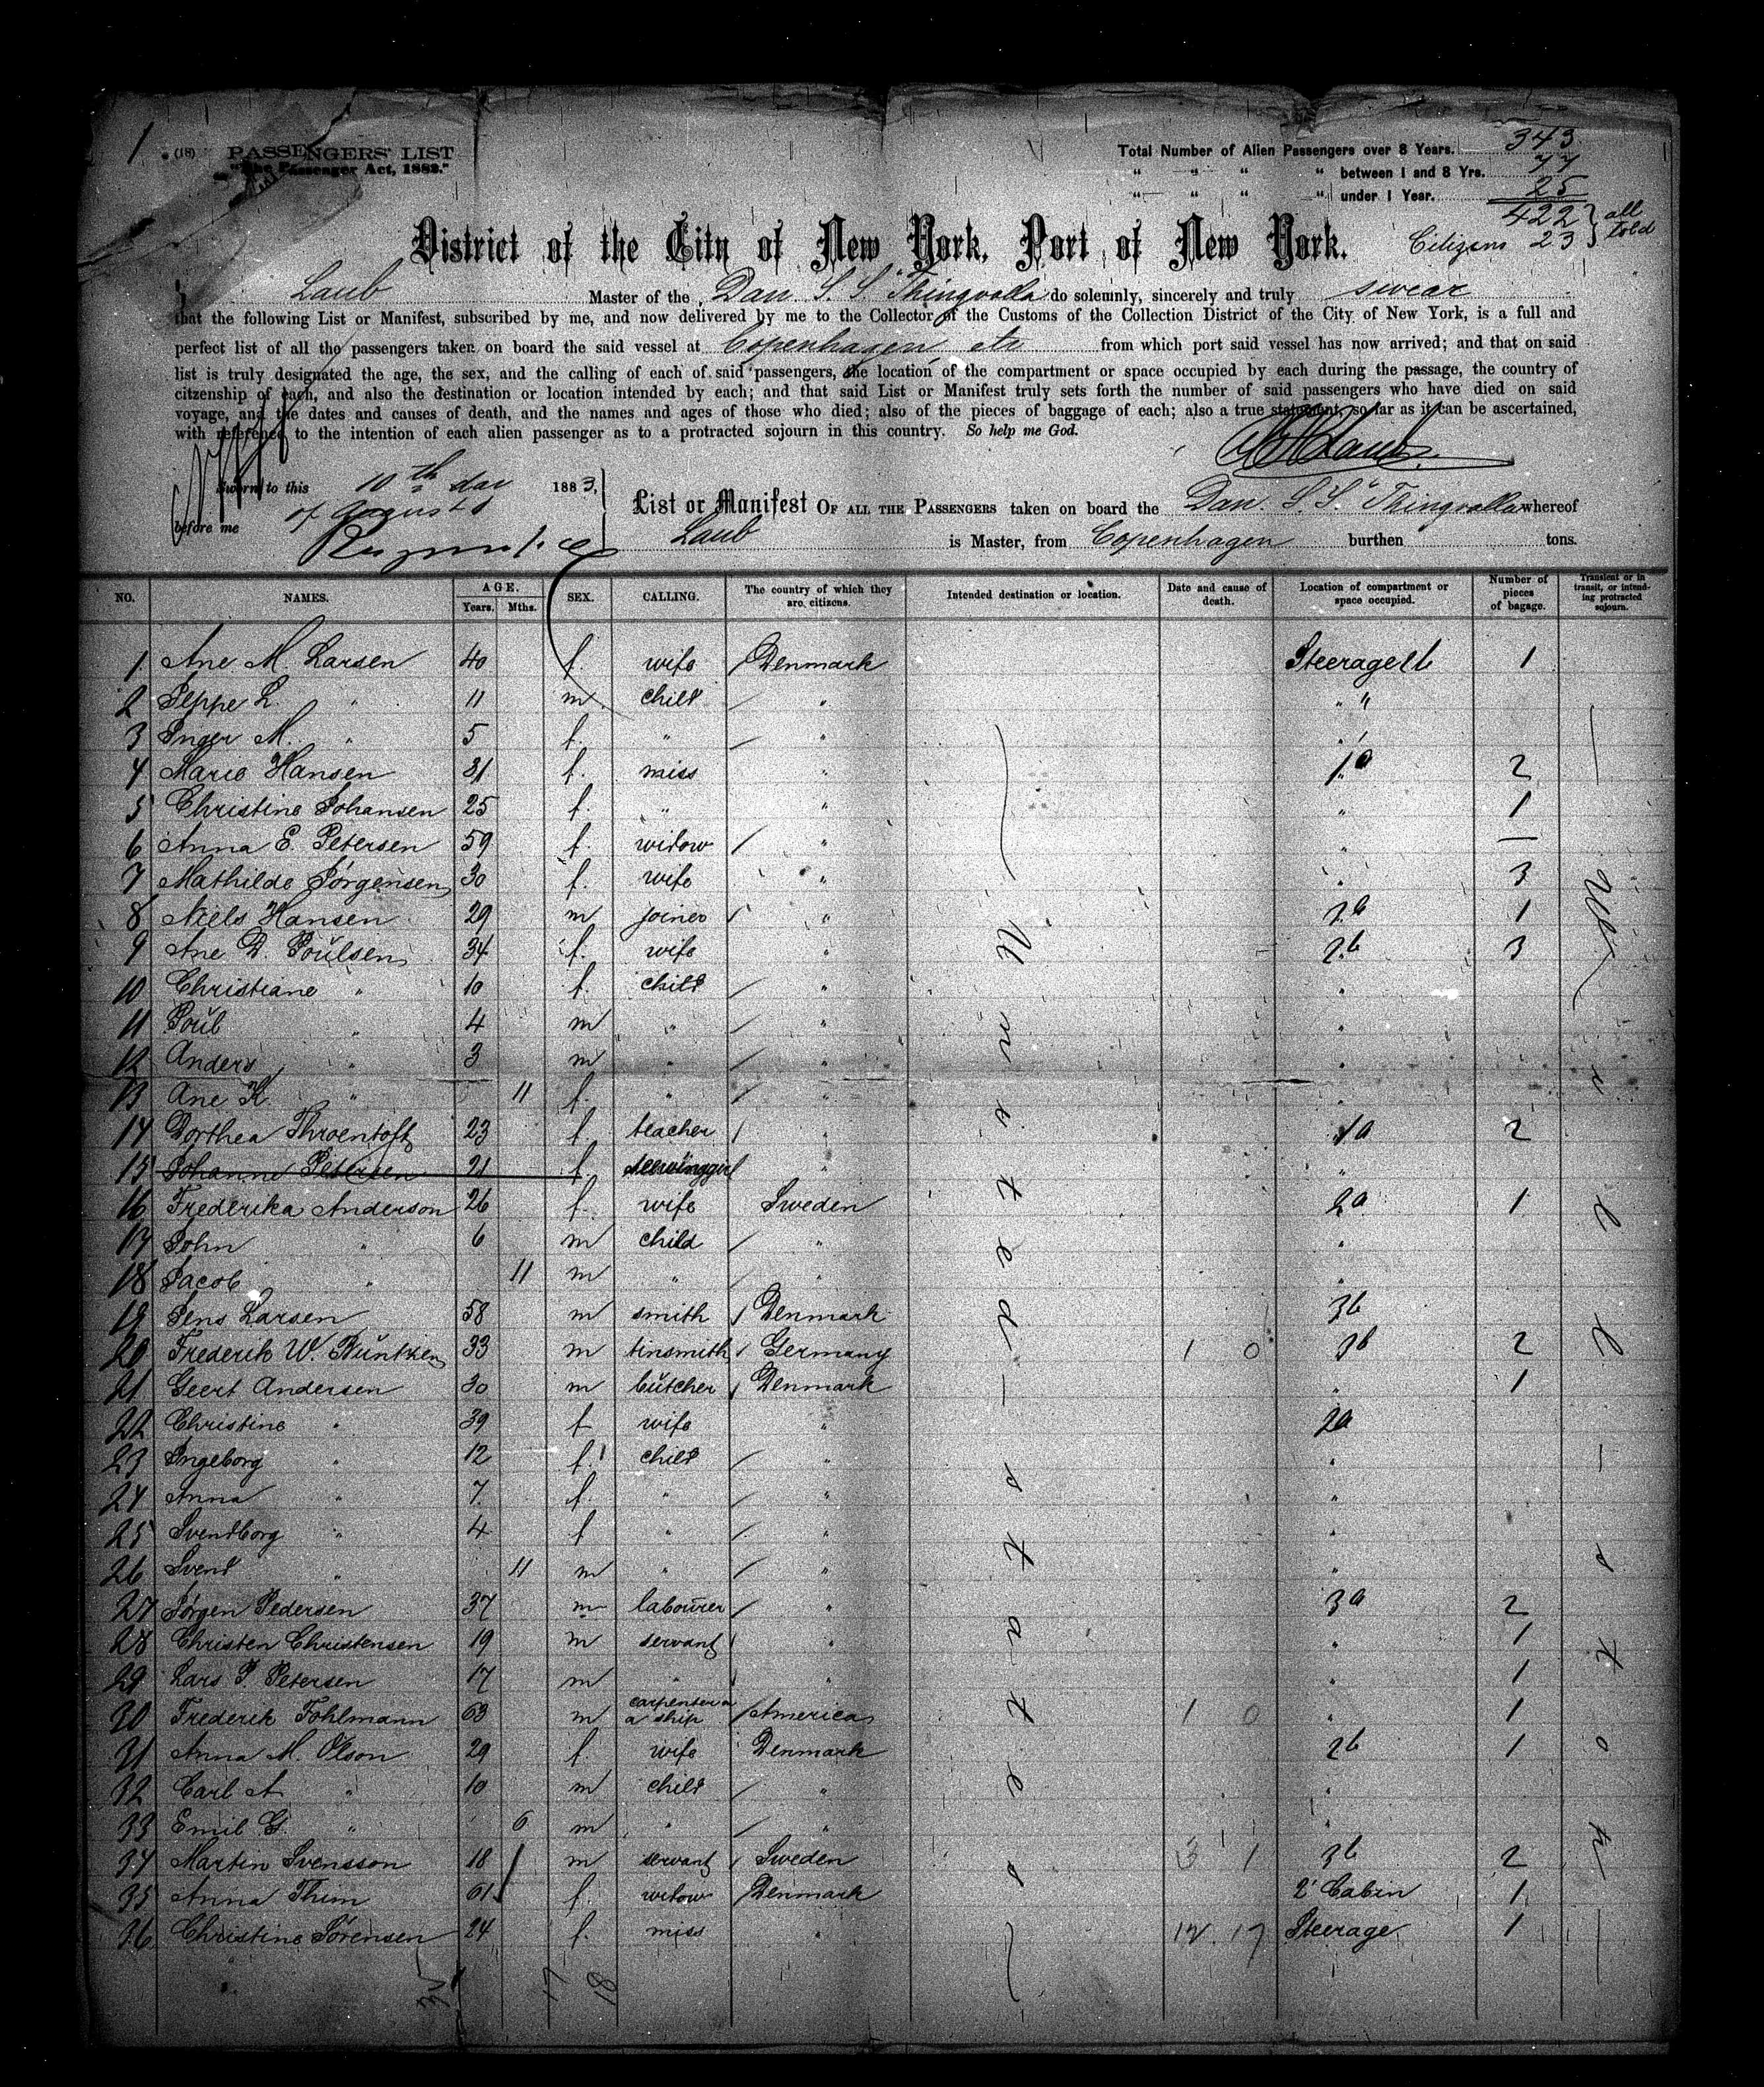 1
(18) PASSENGERS' LIST
"The Passenger Act, 1882."
Total Number of Alien Passengers over 8 Years. 343
" " " " between 1 and 8 Yrs. 77
" " " " under 1 Year. 25
422 } all told
Citizens 23
District of the City of New York, Port of New York.
I, Laub Master of the Dan S. S. "Thingvalla do solemnly, sincerely and truly swear
that the following List or Manifest, subscribed by me, and now delivered by me to the Collector of the Customs of the Collection District of the City of New York, is a full and
perfect list of all the passengers taken on board the said vessel at Copenhagen, etc from which port said vessel has now arrived; and that on said
list is truly designated the age, the sex, and the calling of each of said passengers, the location of the compartment or space occupied by each during the passage, the country of
citzenship of each, and also the destination or location intended by each; and that said List or Manifest truly sets forth the number of said passengers who have died on said
voyage, and the dates and causes of death, and the names and ages of those who died; also of the pieces of baggage of each; also a true statement, so far as it can be ascertained,
with reference to the intention of each alien passenger as to a protracted sojourn in this country. So help me God.
Laub
Sworn to this 10th day 1883,
of August
before me
List or Manifest OF ALL THE PASSENGERS taken on board the Dan. S. S. "Thingvalla whereof
Laub is Master, from Copenhagen burthen tons.
NO. NAMES. AGE. Years. Mths. SEX. CALLING. The country of which they are citizens. Intended destination or location. Date and cause of death. Location of compartment or space occupied. Number of pieces of bagage. Transient or in transit, or intending protracted sojourn.
1 Ane M. Larsen 40 f. wife Denmark Steerage 1
2 Jeppe L. " 11 m child " "
3 Inger M. " 5 f. " " "
4 Marie Hansen 31 f. miss " 1a 2
5 Christine Johansen 25 f. " " " 1
6 Anna E. Petersen 59 f. widow " " —
7 Mathilde Jørgensen 30 f. wife " " 3
8 Niels Hansen 29 m joiner " 1
9 Ane D. Poulsen 34 f. wife " 2b 3
10 Christiane " 10 f. child " "
11 Poul " 4 m " " "
12 Anders " 3 m " " "
13 Ane K. " 11 f. " " "
14 Dorthea Throentoft 23 f. teacher " 1a 2
15 Johanne Petersen 21 f. " "
16 Frederika Anderson 26 f. wife Sweden 2a 1
17 John " 6 m child " "
18 Jacob " 11 m " " "
19 Jens Larsen 58 m smith Denmark 3b
20 Frederik W. Buntzen 33 m tinsmith Germany 1 0 3b 2
21 Geert Andersen 30 m butcher Denmark " 1
22 Christine " 39 f wife " 2a
23 Ingeborg " 12 f. child " "
24 Anna " 7 f. " " "
25 Svendborg " 4 f " " "
26 Svend " 11 m " " "
27 Jørgen Pedersen 37 m labourer " 3a 2
28 Christen Christensen 19 m servant " " 1
29 Lars P. Petersen 17 m " " " 1
30 Frederik Fohlmann 63 m carpenter a ship America 1 0 " 1
31 Anna M. Olson 29 f. wife Denmark 2b 1
32 Carl A " 10 m child " "
33 Emil G. " 6 m " " "
34 Martin Svensson 18 m servant Sweden 3 1 3b 2
35 Anna Thim 61 f. widow Denmark 2' Cabin 1
36 Christine Sørensen 24 f. miss " 12. 17 Steerage 1
United states
17 18